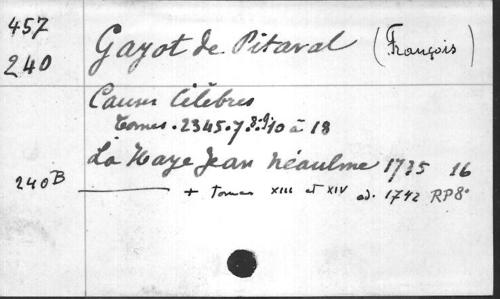 457
240 Gayot de Pitaval (François)
Causes Célèbres
Tomes . 2 3 4 5 . 7 . 8 . 9 . 10 à 18
La Haye Jean Néaulme 1735 16
240B + tomes XIII et XIV ed. 1742 RP8°